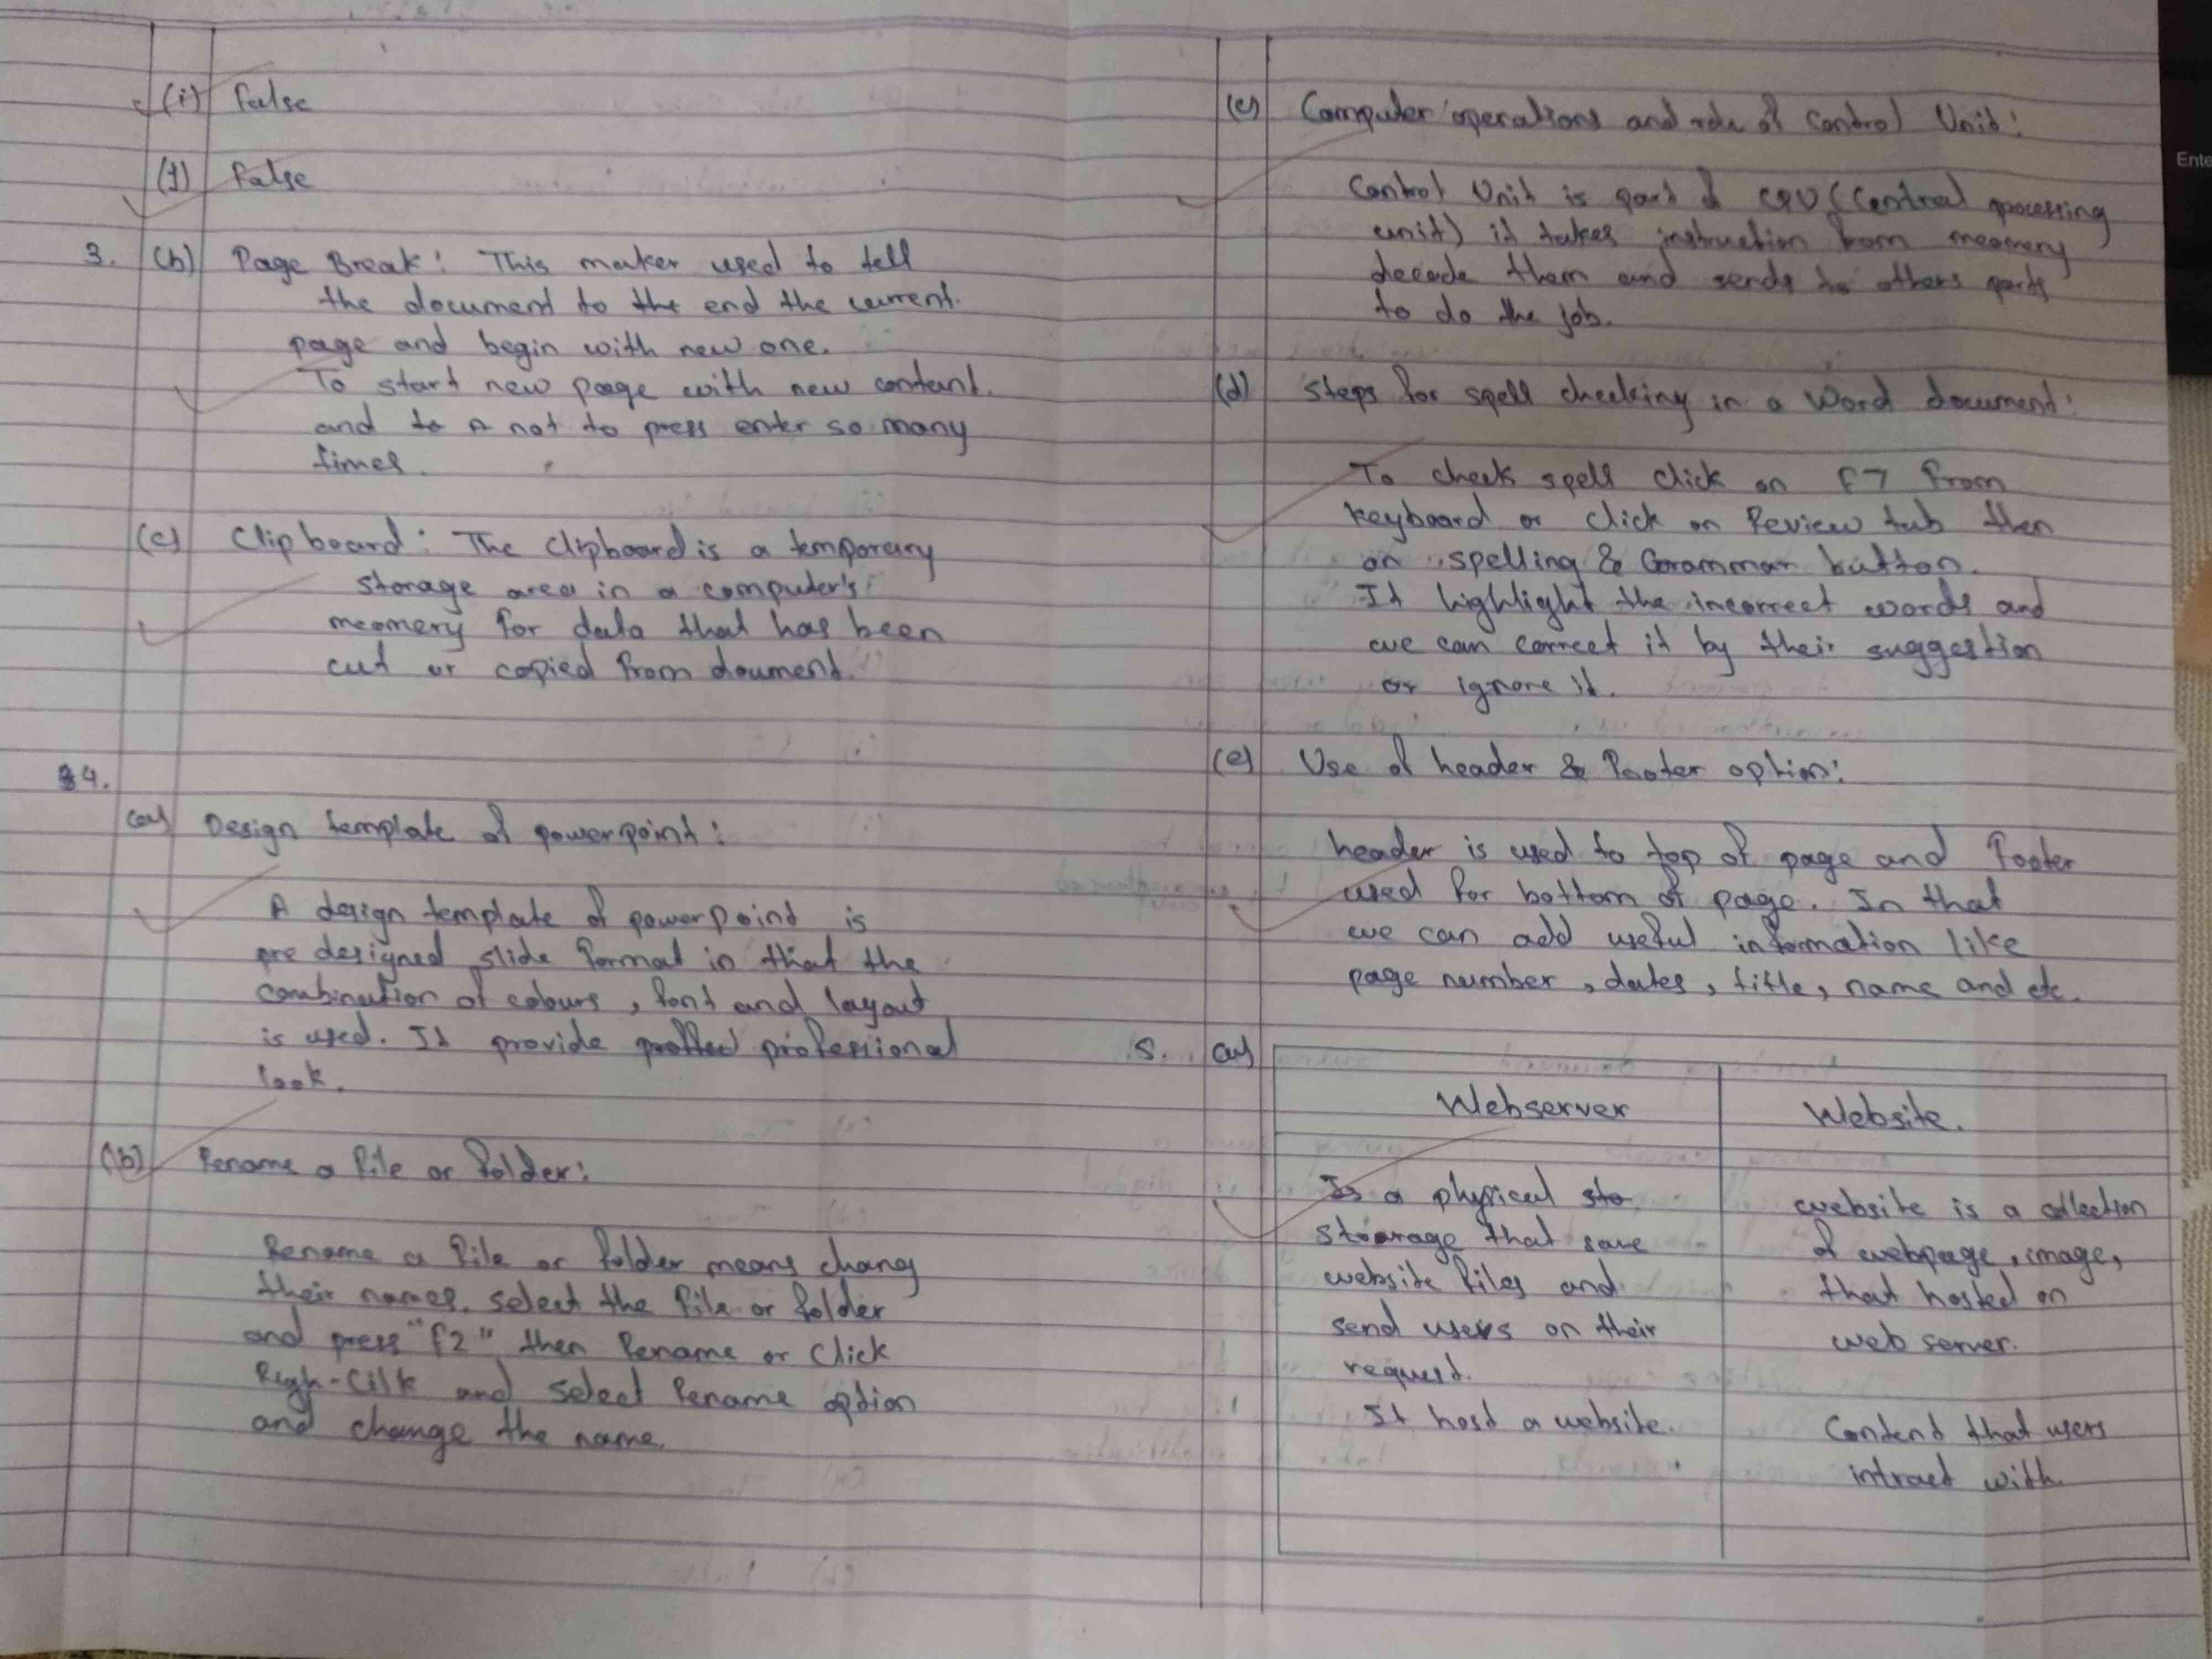 (i) False
(j) False
3. (b) Page Break: This maker used to tell
the document to the end the current.
page and begin with new one.
To start new paege with new content.
and to not to press enter so many
times.
(c) Clipboard: The Clipboard is a temporary
storage area in a computer's
meomery for data that has been
cut or copied from doument.
4.
(a) Design template of powerpoint:
A design template of powerpoint is
pre designed slide format in that the
combination of colours, font and layout
is used. It provide professional
look.
(b) Rename a file or folder:
Rename a file or folder means chang
their names. select the file or folder
and press "F2" then Rename or Click
Righ-Cilk and select Rename option
and change the name.
(c) Computer operations and role of Control Unit:
Control Unit is part of CPU (Central processing
unit) it takes instruction from meomery
decode them and sends to others parts
to do the job.
(d) Steps for spell checking in a Word document:
To check spell click on F7 from
keyboard or click on Review tab then
on spelling & Grammar button.
It highlight the incorrect words and
we can correct it by their suggestion
or ignore it.
(e) Use of header & Footer option:
header is used to top of page and Footer
used for bottom of page. In that
we can add useful information like
page number, dates, title, name and etc.
5. (a)
Webserver Website.
Is a physical sto
storage that save
website files and
send users on their
request.
It host a website.
website is a collection
of webpage, image,
that hosted on
web server.
Content that users
intract with.
Ente